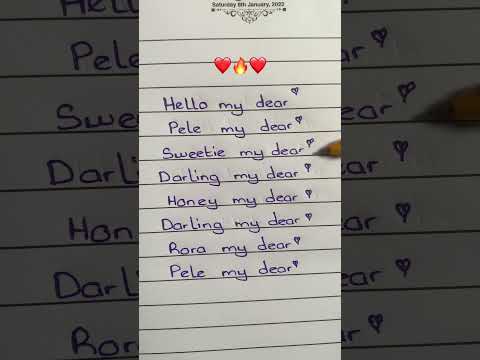 Saturday 8th January, 2022
Hello my dear
Pele my dear
Sweetie my dear
Darling my dear
Honey my dear
Darling my dear
Rora my dear
Pele my dear